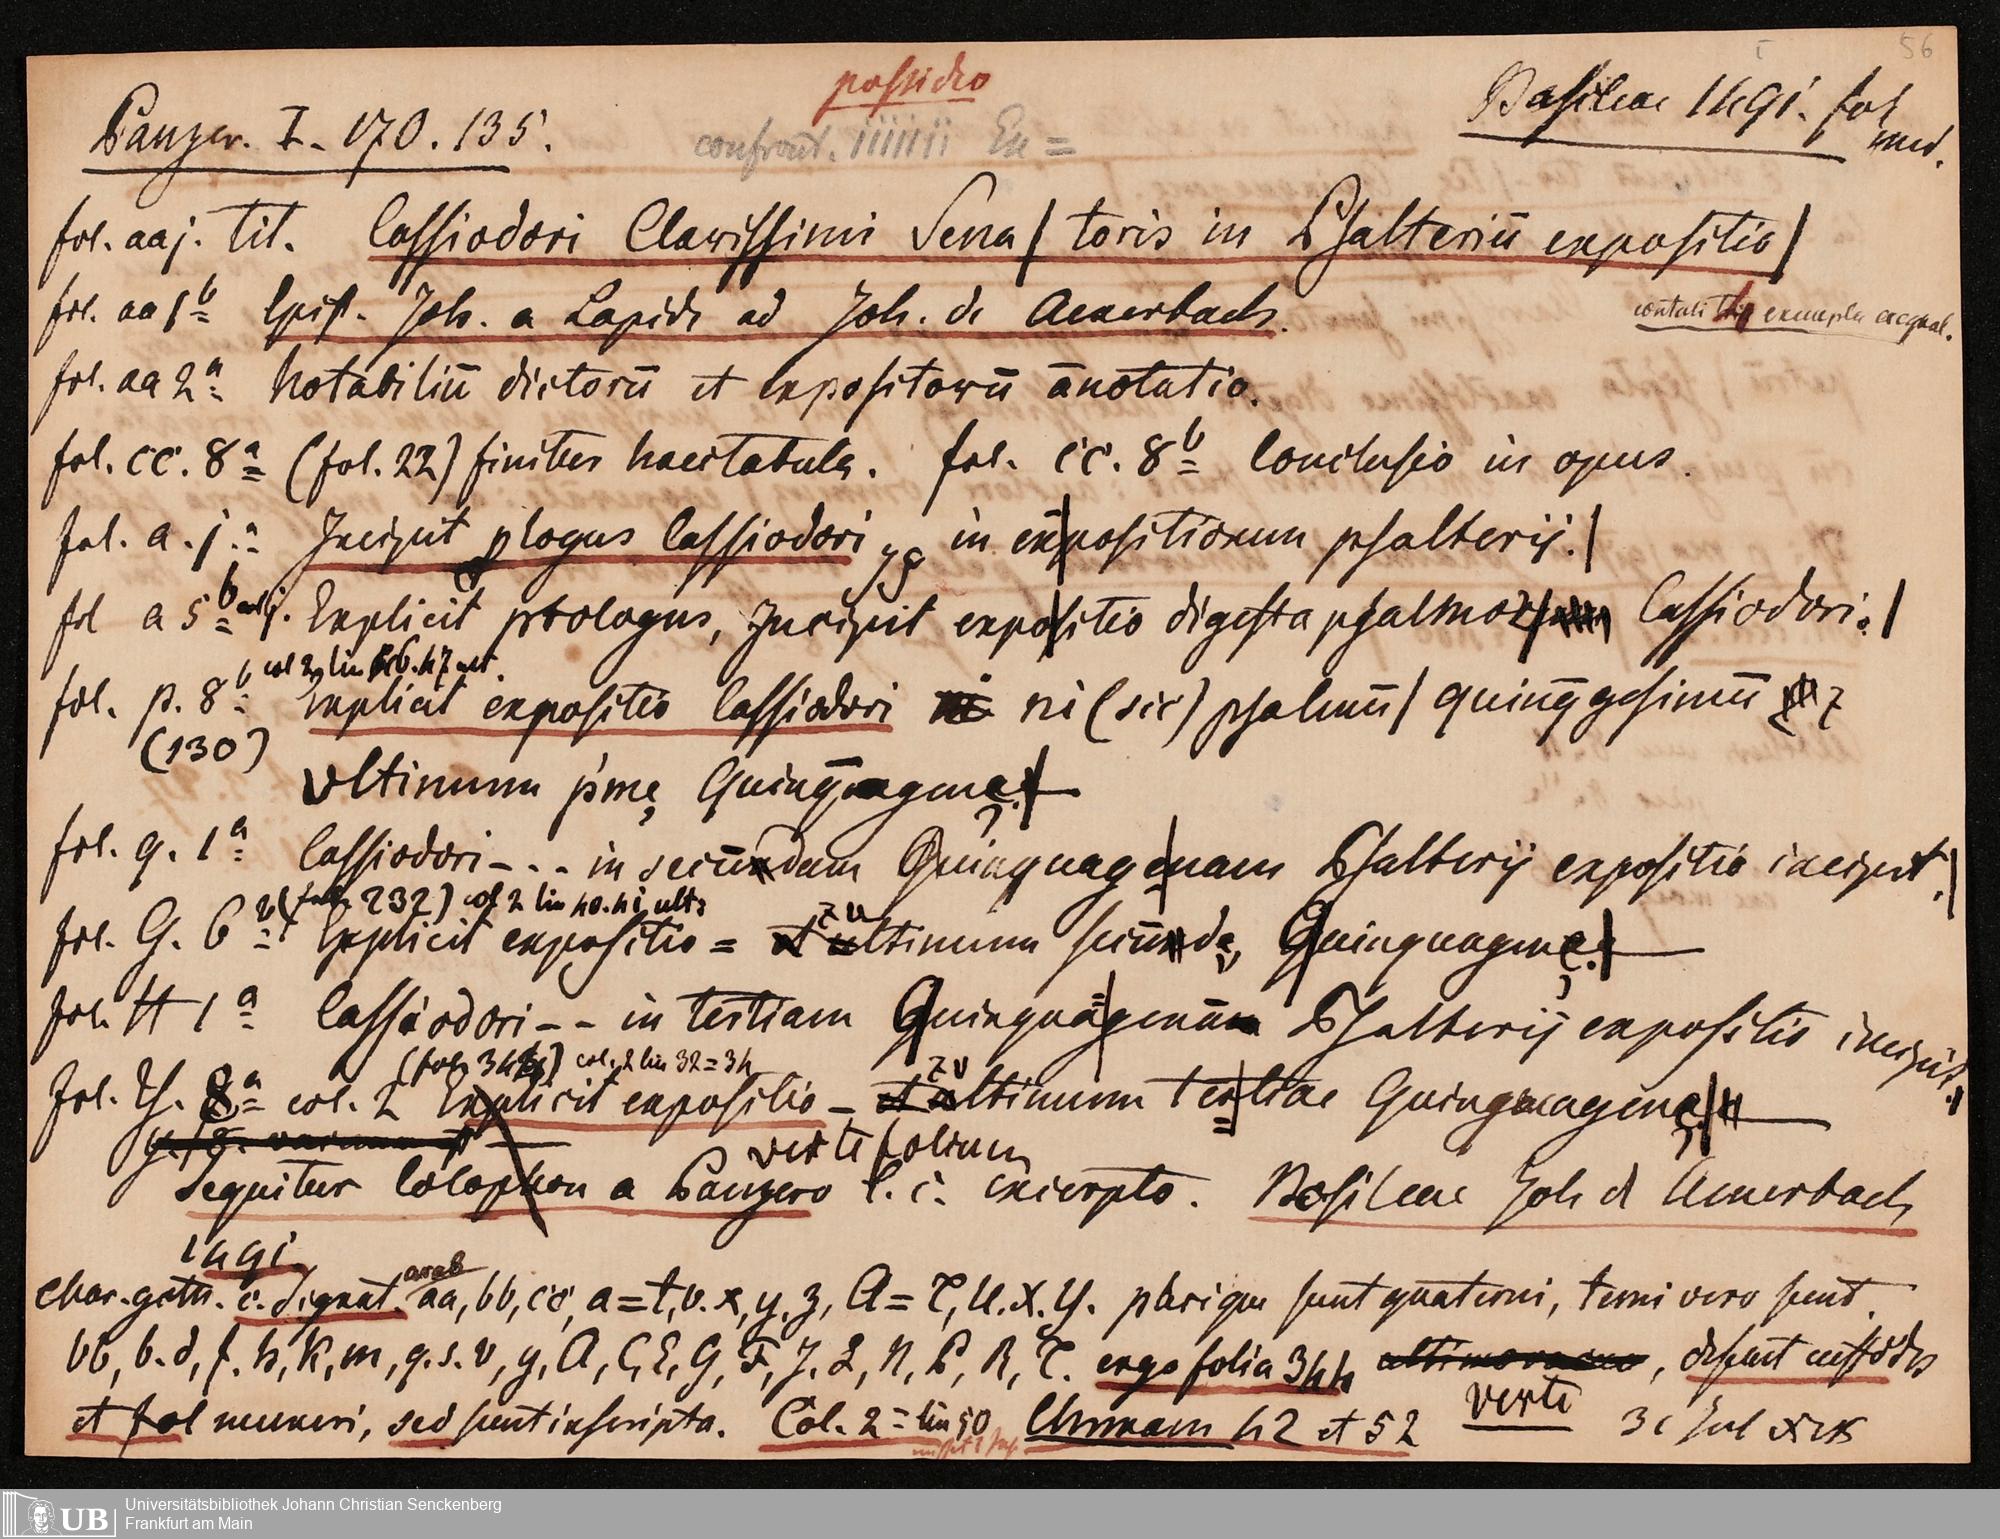 56
possideo
Panzer. I. 170. 135.
confront. Ex =
Basileae 1491. fol
med.
fol. aaj. tit. Cassiodori Clarissimi Sena | toris in Psalteriū expositio |
fol. aa 1b Epist. Joh. a Lapide ad Joh. de Amerbach.
contuli exempla aequal.
fol. aa 2a Notabiliū dictorū et expositorū ānotatio.
fol. cc. 8a (fol. 22) finitur haec tabula. fol. cc. 8b Conclusio in opus.
fol. a. j. a Incipit plogus Cassiodori in ex|positionum psalterij. |
fol a 5b col j. Explicit prologus, Incipit expo|sitio digesta psalmoꝝ | Cassiodori. |
col 2 lin 46. 47 ult.
fol. p. 8b Explicit expositio Cassiodori ni (sic) psalmū | quinq̄gesimū
(130)
vltimum p'me Quinquagene. |
fol. q. 1a Cassiodori - - - in secūdam Quinquage|nam Psalterij expositio incipit. |
(fol. 232) col 2 lin 40. 41 ult
fol. G. 6b Explicit expositio = vltimum secūde Quinquagene. |
fol. H 1a Cassiodori - - in tertiam Quinqua|genā Psalterij expositio incipit. |
(fol. 344) col. 2 lin 32=34
fol. Y. 8a col. 2 Explicit expositio - vltimum ter|tiae Quinquagene. |
verte folium
sequitur Colophon a Panzero l. c. excerpto. Basileae Joh d Amerbach
1491.
arab
char. goth. c. signat. aa, bb, cc, a=t, v. x, y. z, A=T, U. X. Y. plerique sunt quaterni, terni vero sunt.
bb, b. d, f. h, k, m, q. s. v, y, A, C, E, G, F, J. L, N, P, R, T. ergo folia 344, desunt custodes
et fol numeri, sed sunt inscripta. Col. 2 = lin 50 42 et 52 verte